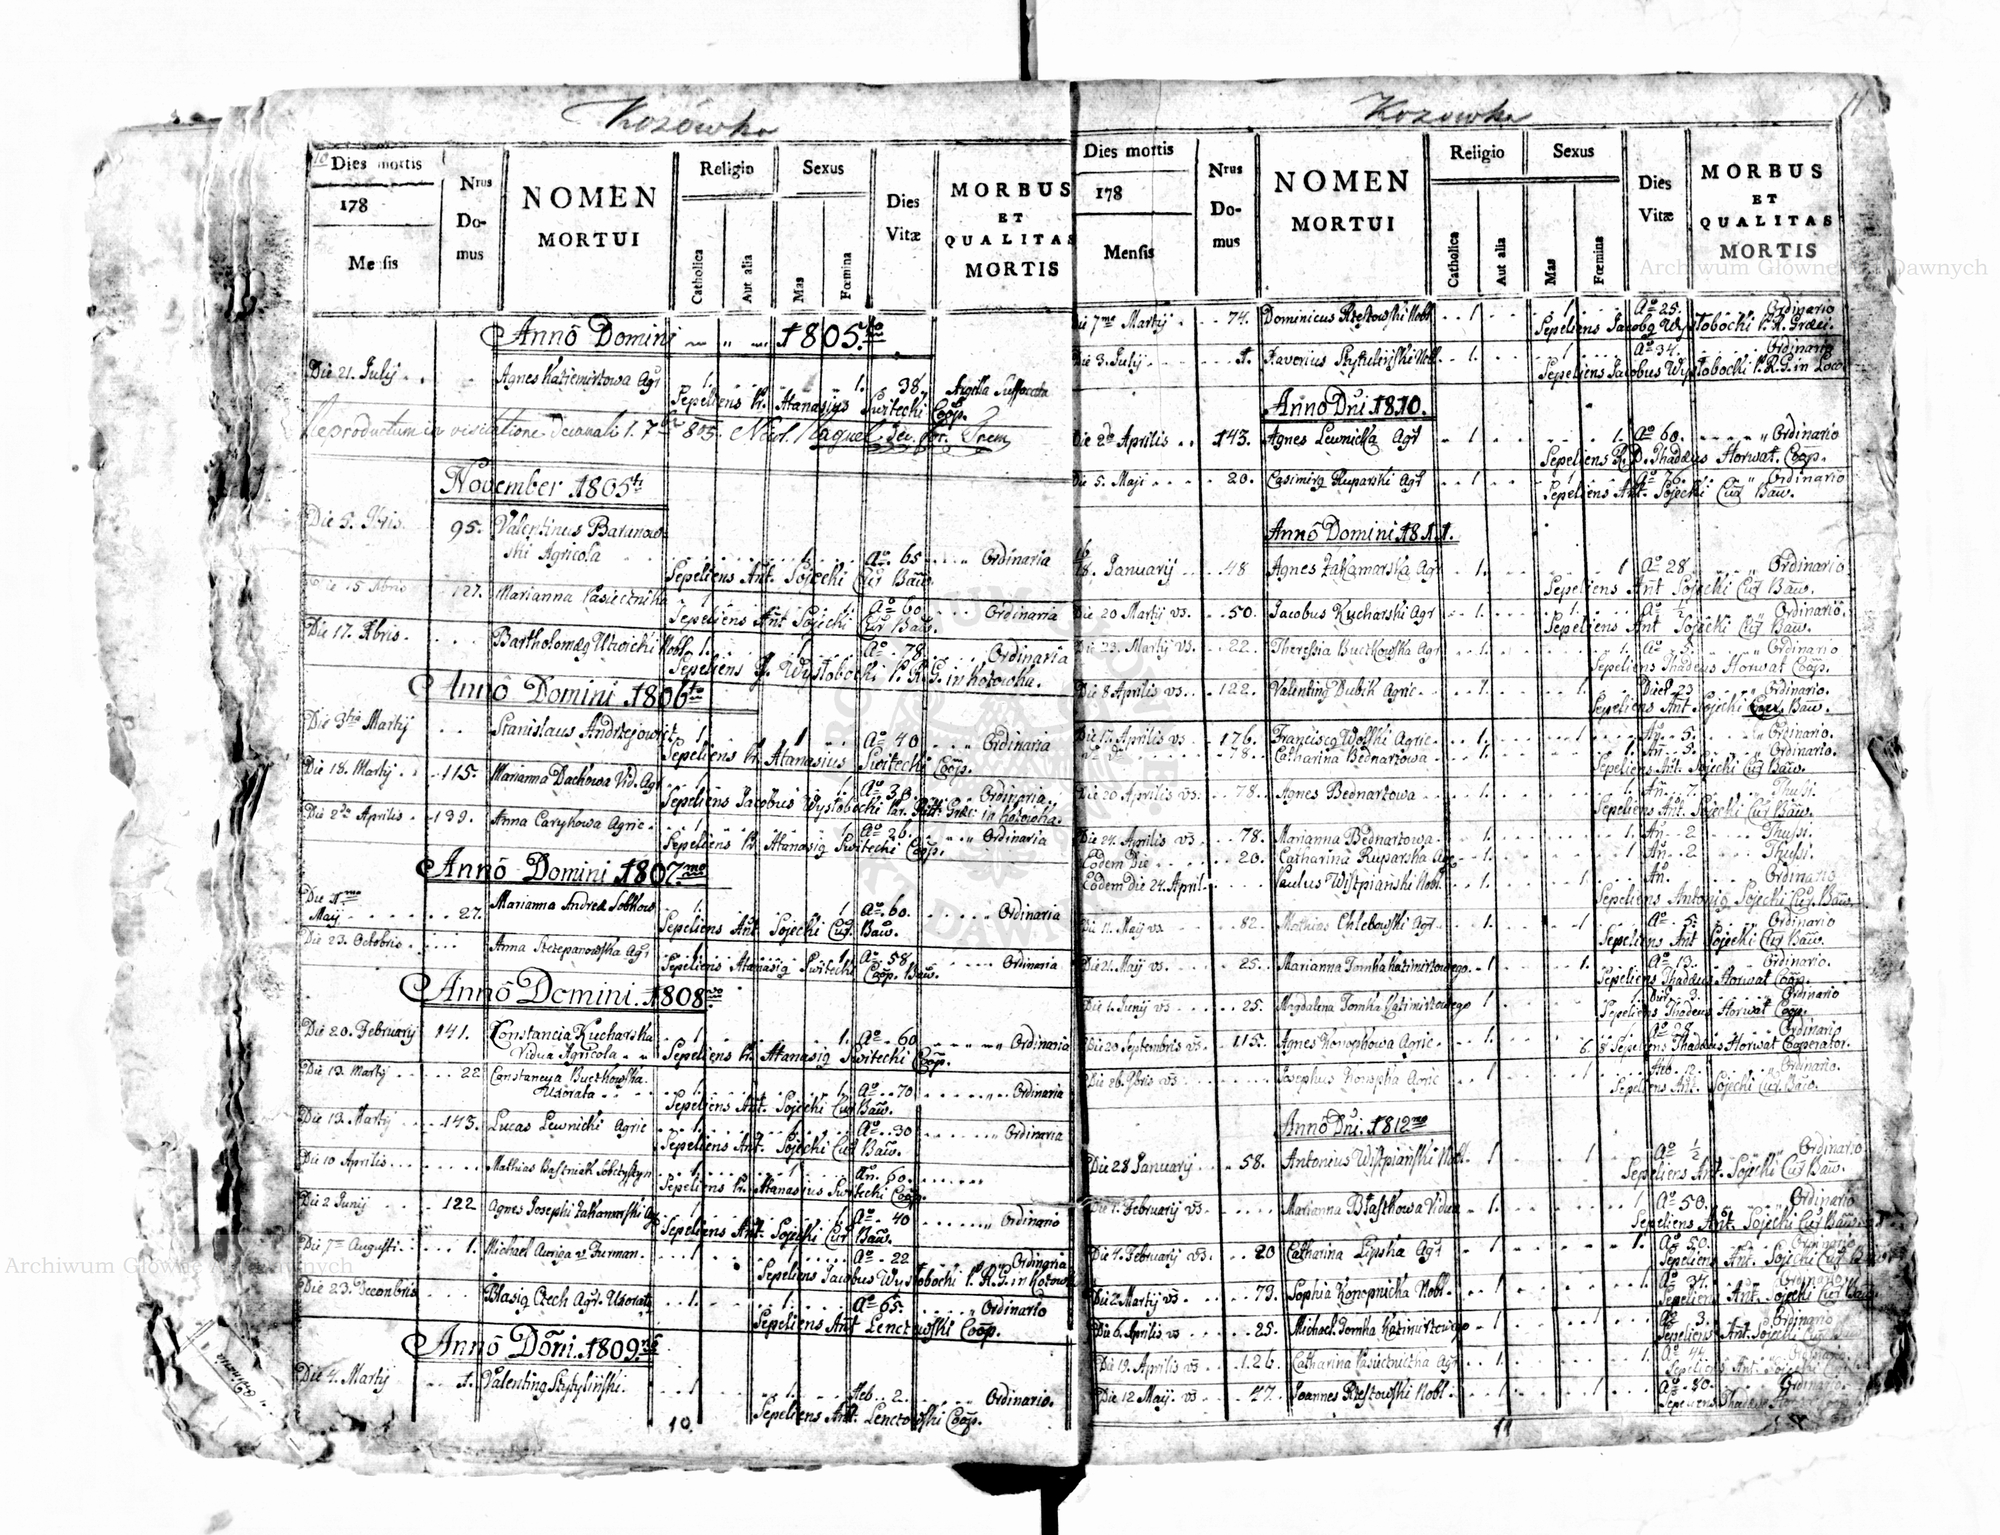 Kozówka
10
Dies mortis
178
Mensis
Nrus Domus
NOMEN MORTUI
Religio
Catholica
Aut alia
Sexus
Mas
Fœmina
Dies Vitæ
MORBUS ET QUALITAS MORTIS
Annô Domini 1805to
Die 21. Julij . . Agnes Kaziemirzowa Agr 1. 1. 38. Angella Suffocata
Sepeliens Pr. Atanasius Switecki Coop.
Reproductum in visitatione Decanali
November 1805ti
Die 5. Xbris 95. Valentinus Baranow-
ski Agricola 1. Aº 65 Ordinaria
Sepeliens Ant. Sojecki Cur Baw.
Die 15 Xbris 127. Marianna Pasiecznika 1 1. Aº 60 Ordinaria
Sepeliens Ant Sojecki Cur Baw.
Die 17. Xbris. Bartholomæg Uzwicki Nobl. 1. Aº 78. Ordinaria
Sepeliens J. Wysłobocki P. R. G. in Kozowka.
Annô Domini 1806to
Die 3tia Martij Stanislaus Andrzejowicz 1. 1 Aº 40 Ordinaria
Sepeliens Pr. Atanasius Switecki Coop.
Die 18. Martij 115. Marianna Dachowa Vid. Agr 1 1. Aº 30. Ordinaria
Sepeliens Jacobus Wysłobocki Par. Ritt. Græc: in Kozowka.
Die 2da Aprilis 139. Anna Carykowa Agric. 1 1. Aº 26. Ordinaria
Sepeliens Pr. Atanasig Switecki Coop.
Annô Domini 1807mo
Die 1mo
Maij 27. Marianna Andreæ Sobkow 1. 1. Aº 60. Ordinaria
Sepeliens Ant Sojecki Cur. Baw.
Die 23. Octobris Anna Szczepanowska Agr 1 1. Aº 58 Ordinaria
Sepeliens Atanasig Switecki Coop. Baw.
Annô Domini 1808vo
Die 20. February 141. Constancia Kucharska
Vidua Agricola 1 1. Aº 60 Ordinaria
Sepeliens Pr. Atanasig Switecki Coop.
Die 13. Martij 22 Constancya Buczkowska
Uxorata 1. 1. Aº 70 Ordinaria
Sepeliens Ant. Sojecki Cur Baw.
Die 13. Martij 143. Lucas Lewnicki Agric 1. 1. Aº 30 Ordinaria
Sepeliens Ant. Sojecki Cur Baw.
Die 10 Aprilis Mathias 1. 1 An. 60.
Sepeliens Pr. Atanasius Switecki Coop.
Die 2 Junij 122 Agnes Josephi Zakamarski Agr 1. 1. Aº 40 Ordinario
Sepeliens Ant. Sojecki Cur Baw.
Die 7ma Augusti 1. Michael Auriga v. Furman. 1 Aº 22 Ordinaria
Sepeliens Jacobus Wysłobocki P. R. G. in Kozow
Die 23. Decembris Blasig Czech Agr. Uxoratg 1. 1. Aº 65. Ordinario
Sepeliens Ant Lenczowski Coop.
Annô Dōni. 1809no
Die 4. Martij 1. Valenting Szytyliński. 1 1. Heb. 2. Ordinario.
Sepeliens Ant. Lenczowski Coop.
10.
Kozowka
11
Dies mortis
178
Mensis
Nrus Domus
NOMEN MORTUI
Religio
Catholica
Aut alia
Sexus
Mas
Fœmina
Dies Vitæ
MORBUS ET QUALITAS MORTIS
Die 7mo Martij 74. Dominicus Nobl 1 1 Aº 25. Ordinario
Sepeliens Jacobg Wysłobocki P. R. Græci.
Die 3. Julij 1. Xaverius Nobl. 1. 1 Aº 34. Ordinario
Sepeliens Jacobus Wysłobocki P. R. G. in Loco
Anno Dni 1810.
Die 2da Aprilis 143. Agnes Lewnicka Agr 1 1. Aº 60. Ordinario
Sepeliens R. D. Thadæus Horwat. Coop.
Die 5. Maji 20. Casimirg Ruparski Agr 1 1 Ordinario
Sepeliens Ant. Sojecki Cur Baw.
Annô Domini 1811.
18. January 48 Agnes Zakamarska Agr 1. 1 Aº 28 Ordinario
Sepeliens Ant Sojecki Cur Baw.
Die 20 Martij vs. 50. Jacobus Kucharski Agr 1. 1. Aº ½ Ordinario.
Sepeliens Ant Sojecki Cur Baw.
Die 23. Martij vs. 22. Theressia Buczkowska Agr 1. 1. Aº 5. Ordinario
Sepeliens Thadeus Horwat Coop.
Die 8 Aprilis vs. 122. Valenting Dubik Agric. 1. 1. Dier. 23 Ordinario.
Sepeliens Ant Sojecki Cur Baw.
Die 17. Aprilis vs 176. Francisco Wolski Agric. 1. 1. An. 5. Ordinario.
78. Catharina Bednarzowa 1. 1. An. 5. Ordinario.
Sepeliens Ant. Sojecki Cur Baw.
Die 20 Aprilis vs. 78. Agnes Bednarzowa 1. 1. An. 7. Thusi.
Sepeliens Ant. Sojecki Cur Baw.
Die 24. Aprilis vs 78. Marianna Bednarzowa 1. 1. An. 2 Thusi.
Eodem Die 20. Catharina Ruparska Agr. 1. 1 An. 2 Thusi.
Eodem Die 24. April. Paulus Wispiański Nobl. 1. 1 An. Ordinario
Sepeliens Antonig Sojecki Cur. Baw.
Die 11. Maij vs 82. Mathias Chlebowski Agr. 1 1 Aº 5. Ordinario
Sepeliens Ant Sojecki Cur Baw.
Die 21. Maij vs. 25. Marianna Tomka Kazimirzowego. 1 1. Aº 13. Ordinario.
Sepeliens Thadæus Horwat Coop.
Die 1. Junij vs 25. Magdalena Tomka Kazimirzowego 1 1. Dier. 3. Ordinario
Sepeliens Thadeus Horwat Coop.
Die 20 Septembris vs. 115. Agnes Konopkowa Agric. 1. Aº 28. Ordinario
Sepeliens Thadæus Horwat Cooperator.
Die 26. Xbris vs Josephus Konopka Agric 1 1 Heb. 12. Ordinario.
Sepeliens Ant. Sojecki Cur. Baw.
Anno Dni. 1812mo
Die 28 January 58. Antonius Wispiański Nobl. 1 1 Aº ½ Ordinario
Sepeliens Ant. Sojecki Cur Baw.
Die 1. February vs. Marianna Błaszkowa Vidua 1. 1 Aº 50. Ordinario
Sepeliens Ant. Sojecki Cur Baw.
Die 4. February vs. 20 Catharina Lipska Agr 1 1. Aº 50. Ordinario
Sepeliens Ant. Sojecki Cur Baw
Die 2 Martij vs 79. Sophia Konopnicka Nobl. 1 1. Aº 34. Ordinario
Sepeliens Ant. Sojecki Cur Baw.
Die 6. Aprilis vs 25. Michael Tomka Kazimirzowego 1 1 Aº 3. Ordinario
Sepeliens Ant. Sojecki Cur Baw
Die 19. Aprilis vs 126. Catharina Pasieczniczka Agr 1. 1. Aº 44.
Sepeliens Ant. Sojecki
Die 12 Maij. vs 47. Joannes Nobl. 1 1 Aº 80. Ordinario.
Sepeliens Thadæus Horwat Coop.
11
Archiwum Główne Akt Dawnych
Archiwum Główne Akt Dawnych